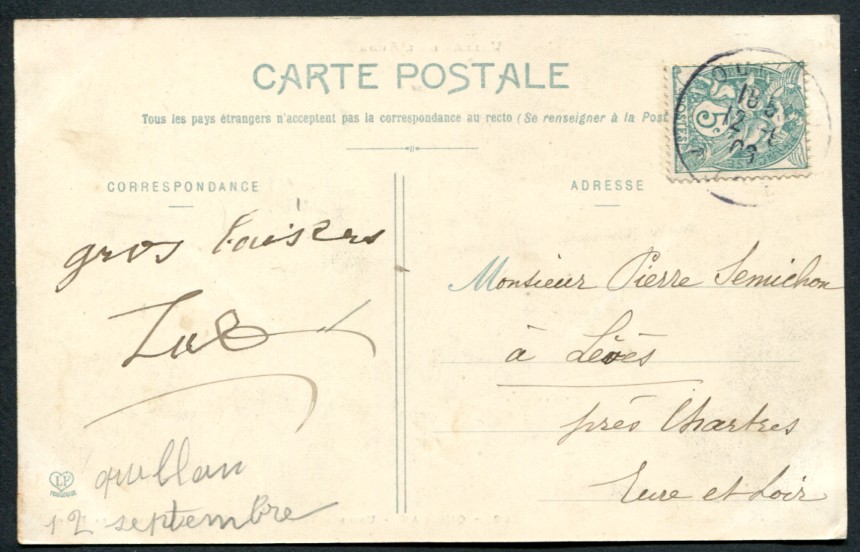 CARTE POSTALE
Tous les pays étrangers n'acceptent pas la correspondance au recto (Se renseigner à la Post
CORRESPONDANCE
gros baisers
quillan
12 septembre
LF
TOULOUSE
ADRESSE
Monsieur Pierre Semichon
à Lèves
près Chartres
Eure et Loir
5
12